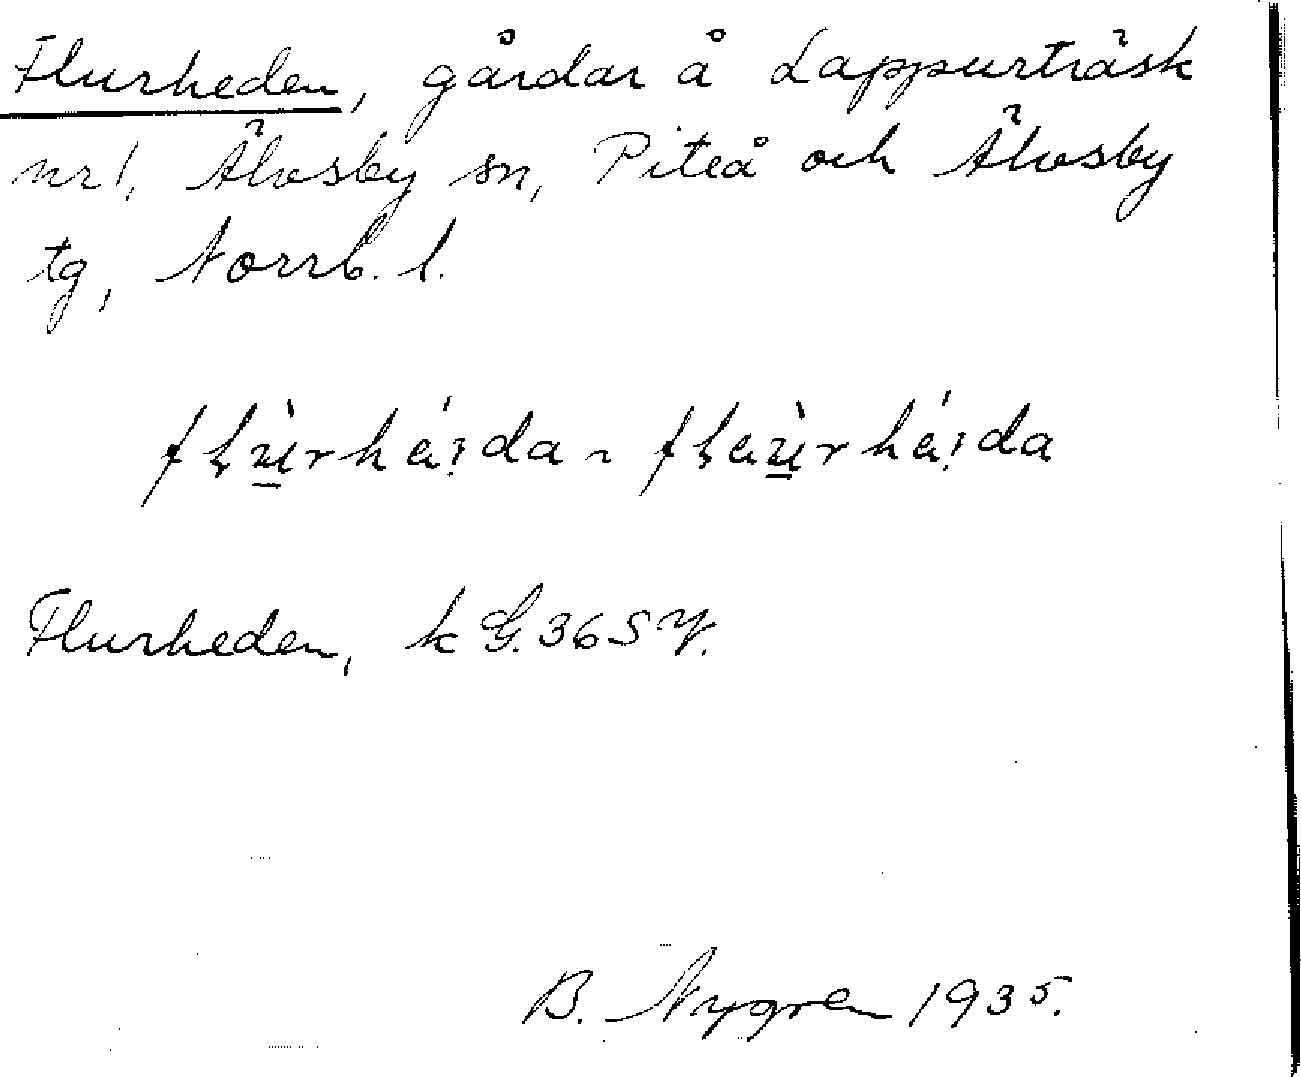 Flurheden, gårdar å Lappurträsk
nr 1, Älvsby sn, Piteå och Älvsby
tg, Norrb. l.
Flurheden, k G. 36 S V.
B. Nygren 1935.